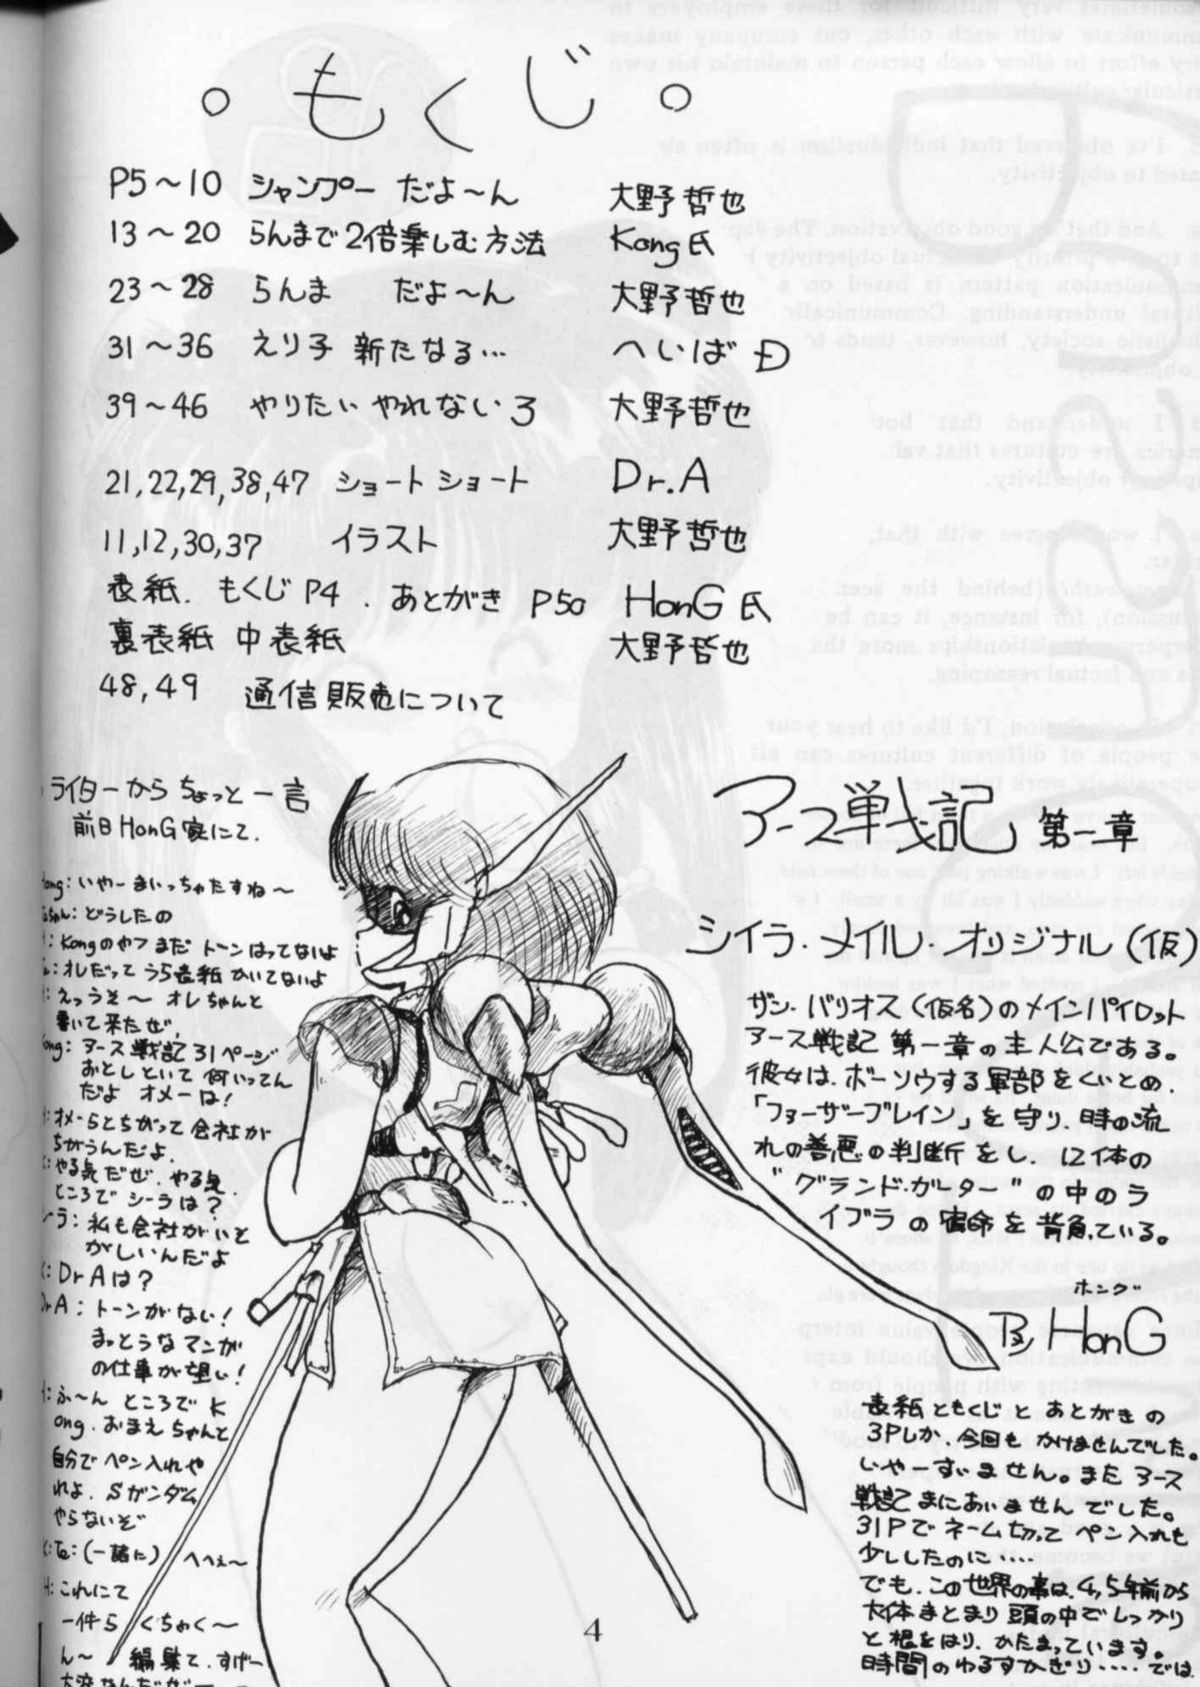 。もくじ。
P5〜10 シャンプー だよ〜ん 大野哲也
13〜20 らんまで2倍楽しむ方法 Kong氏
23〜28 らんま だよ〜ん 大野哲也
31〜36 えり子 新たなる… へいば Đ
39〜46 やりたい やれない 3 大野哲也
21,22,29,38,47 ショートショート Dr.A
11,12,30,37 イラスト 大野哲也
表紙. もくじ P4. あとがき P50 HonG氏
裏表紙 中表紙 大野哲也
48,49 通信販売について
ライターから ちょっと一言
前日HonG家にて.
いやーまいっちゃたすね〜
どうしたの
Kongのやつ まだ トーンはってないよ
オレだって うら表紙 かいてないよ
えっうそ〜 オレちゃんと
書いて来たぜ.
アース戦記31ページ
おとしといて 何いってん
だよ オメーは!
オメーらとちがって会社が
ちがうんだよ.
やる気だぜ.やる気.
ところで シーラは?
私も会社がいと
がしいんだよ
Dr Aは?
Dr A: トーンがない!
まっとうなマンガ
の仕事が望い!
H: ふ〜ん ところで K
ong.おまえちゃんと
自分で ペン入れや
れよ. Sガンダム
やらないぞ
(一諸に) へへぇ〜
H: これにて
一件ら くちゃく〜
ん〜 編集て.すげー
アース戦記 第一章
シイラ・メイル・オリジナル(仮)
ザシ・バリオス(仮名)のメインパイロット
アース戦記 第一章の主人公である。
彼女は、ボーソウする軍部をくいとめ、
「フォーザーブレイン」を守り 時の流
れの善悪の判断をし、12体の
"グランド・ガーター"の中のラ
イブラの宿命を背負ている。
ホング
HonG
表紙ともくじと あとがきの
3Pしか、今回も かけませんでした。
いやーすいません。また アース
戦記 まにあいませんでした。
31Pで ネーム切って ペン入れも
少ししたのに….
でも、この世界の事は、4,5年前から
大体まとまり 頭の中でしっかり
と根をはり、かたまっています。
時間のゆるすかぎり‥‥では
4